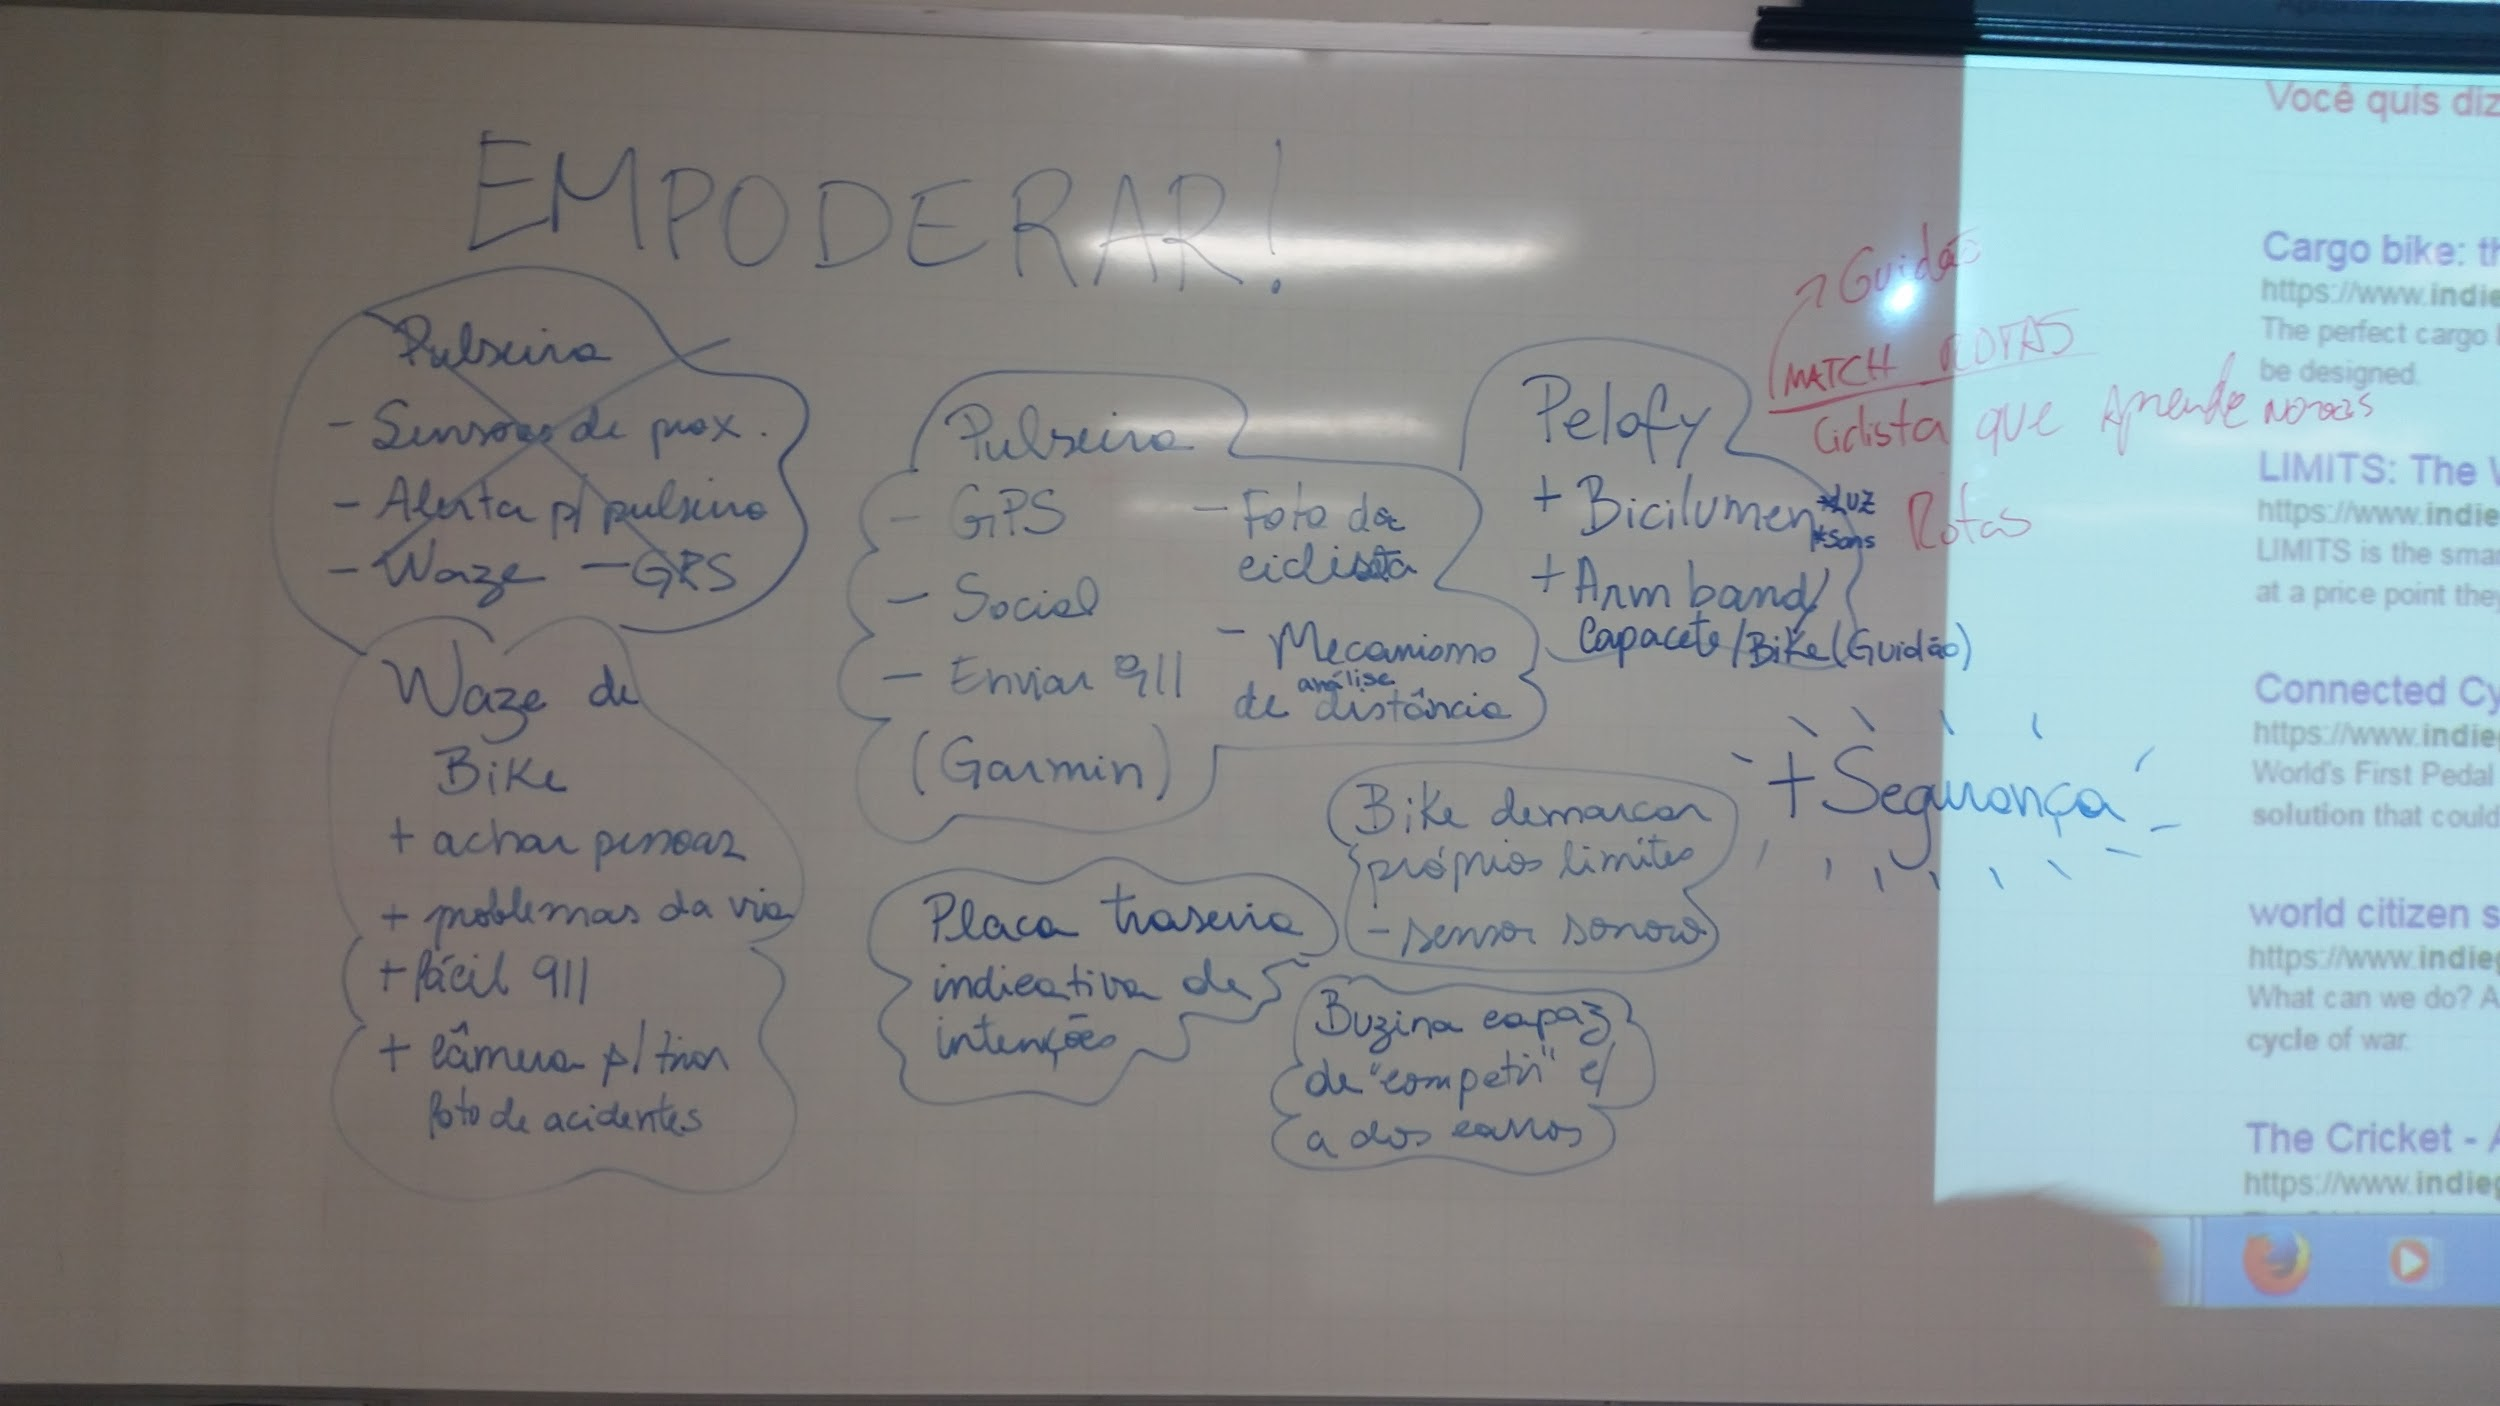 EMPODERAR!
Pulseira
- Sensores de prox.
- Alerta p/ pulseira
- Waze - GPS
Waze de
Bike
+ achar pessoas
+ problemas da via
+ fácil 911
+ câmera p/ tirar
foto de acidentes
Pulseira
- GPS
- Social
- Enviar 911
(Garmin)
- Foto da
ciclista
- Mecanismo
análise
de distância
Placa traseira
indicativa de
intenções
Bike demarcar
próprios limites
- sensor sonoro
Buzina capaz
de "competir" c/
a dos carros
Pelofy
+ Bicilumen *Luz
*Sons
+ Arm band/
Capacete/Bike (Guidão)
Guidão
MATCH ROTAS
Ciclista que Aprende novas
Rotas
+ Segurança
Você quis diz
Cargo bike: th
https://www.indie
The perfect cargo
be designed.
LIMITS: The
https://www.indie
LIMITS is the sma
at a price point they
Connected Cy
https://www.indieg
World's First Pedal
solution that could
world citizen s
https://www.indieg
What can we do? A
cycle of war.
The Cricket - A
https://www.indieg